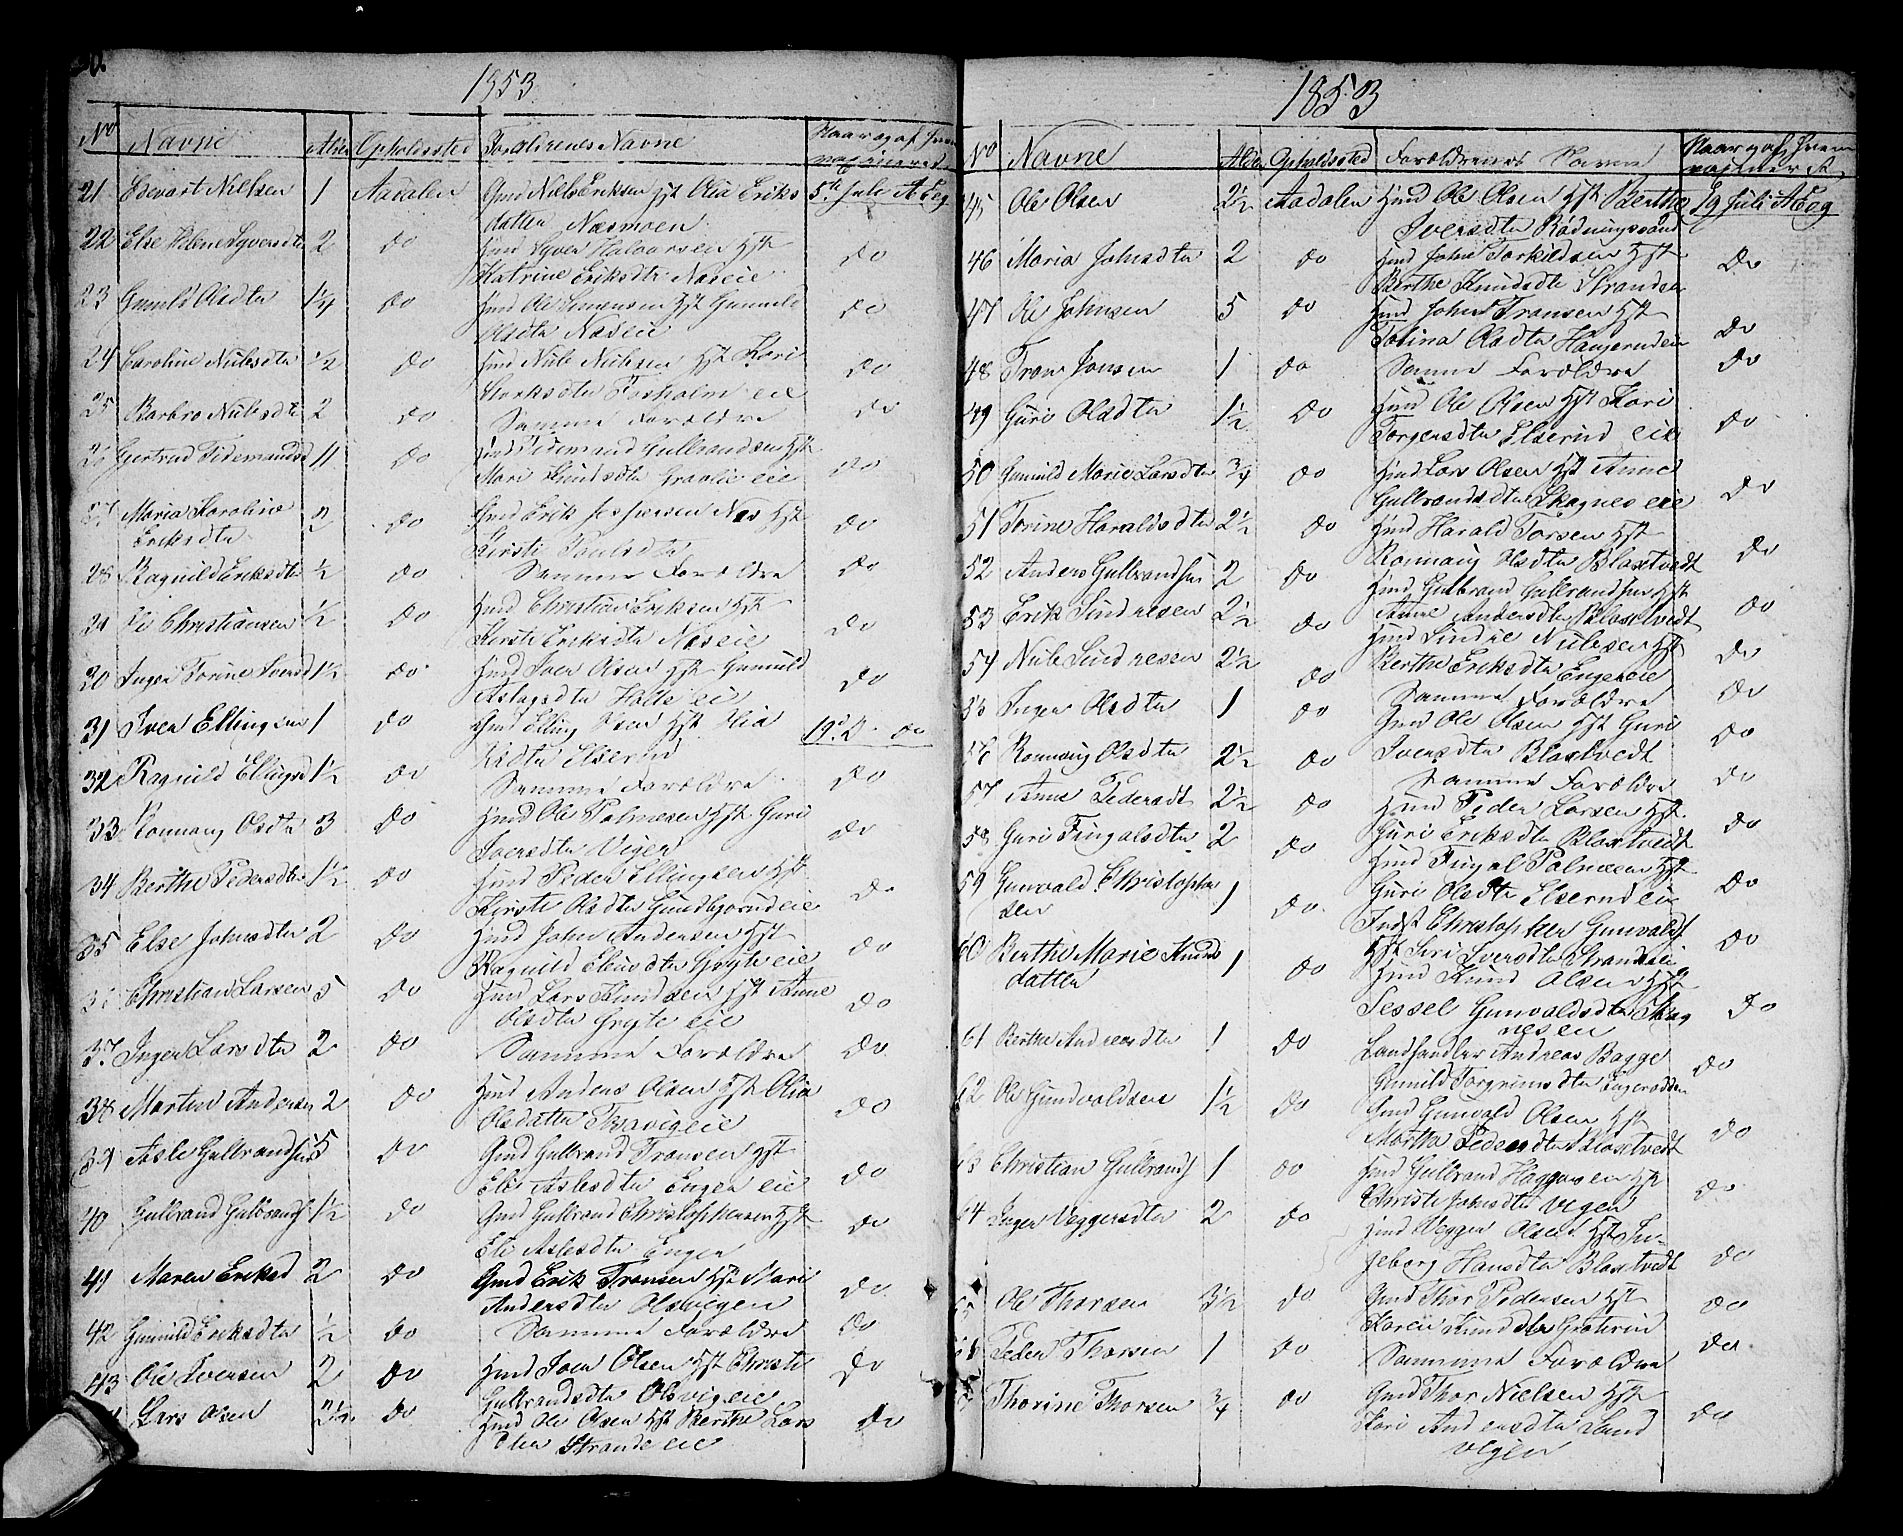 1853
No Navne Alder Opholdssted Forældrenes Navne Naar og af hvem vaxineret
21 Edevart Nielsen 1 Aadalen Gmd Niels Eriksen Hst Olia Eriks 5te Juli A Eeg
datter Næsmoen
22 Else Helene Syversdtr 2 do Hmd Syver Halvorsen Hst do
Katrine Eriksdtr Næseie
23 Gunild Olsdtr 1/4 do Hmd Ole Simensen Hst Gunnild do
Olsdtr Næseie
24 Caroline Nilsdtr 1/2 do Hmd Nils Nielsen Hst Kari do
Larsdtr Forholm eie
25 Barbro Nilsdtr 2 do Samme Forældre do
26 Gertrud Tidemandsd 11 do Hmd Tidemand Gulbrandsen Hst do
Mari Knudsdtr Gravlie eie
27 Maria Karoline 2 do Gmd Erik Jespersen Næs Hst do
Eriksdtr Kirsti Paulsdtr
28 Ragnild Eriksdtr 1/2 do Samme Forældre do
29 Christiansen 1/2 do Hmd Christian Eriksen Hst do
Kersti Eriksdtr Næseie
30 Inger Torine Iversd 1 1/2 do Hmd Iver Olsen Hst Gunnild do
Aslagsdtr Halle eie
31 Iver Ellingsen 1 do Gmd Elling Olsen Hst Olia 19d D do
Elserud
32 Ragnild Ellingsd 1 1/2 do Samme Forældre do
33 Ronnaug Olsdtr 3 do Hmd Ole Palmesen Hst Guri do
Iversdtr Vigen
34 Berthe Pedersdtr 1 1/2 do Hmd Peder Ellingsen Hst do
Kersti Olsdtr Gundbjørud eie
35 Else Johnsdtr 2 do Hmd John Andersen Hst do
Ragnild Eliasdtr Gryte eie
36 Christian Larsen 5 do Hmd Lars Knudsen Hst Anne do
Olsdtr Gryte eie
37 Inger Larsdtr 2 do Samme Forældre do
38 Martin Andersen 2 do Hmd Anders Olsen Hst Olia do
Olsdatter Travig eie
39 Asle Gulbrandsen 5 do Gmd Gulbrand Transen Hst do
Eli Aslesdtr Enger eie
40 Gulbrand Gulbrands 1 1/2 do Gmd Gulbrand Christophersen Hst do
Eli Aslesdtr Enger
41 Maren Eriksd 2 do Gmd Erik Transen Hst Mari do
Andersdtr Olsvigen
42 Gunild Eriksdtr 1/2 do Samme Forældre do
43 Ole Iversen 2 do Hmd Iver Olsen Hst Christi do
Gulbrandsdtr Olsvig eie
Lars Olsen 2 1/2 do Hmd Ole Olsen Hst Berthe Lars do
dtr Strande eie
1853
No Navne Alder Opholdssted Forældrenes Navne Naar og af hvem vaxineret
45 Ole Olsen 2 1/2 Aadalen Hmd Ole Olsen Hst Berthe 19 Juli A Eeg
Iversdtr Rødningssand
46 Maria Johnsdtr 2 do Hmd John Torkildsen Hst do
Berthe Knudsdtr Stranden
47 Ole Johnsen 5 do Hmd John Transen Hst
Torina Olsdtr Haugeruden do
48 Tron Jonsen 1 do Samme Forældre do
49 Guri Olsdtr 1 1/2 do Hmd Ole Olsen Hst Kari do
Torgersdtr Elserud eie
50 Gunnild Marie Larsdtr 3/4 do Hmd Lars Olsen Hst Anne do
Gulbrandsdtr Skagnes eie
51 Torine Haraldsdtr 2 1/2 do Hmd Harald Torsen Hst
Ronnaug Olsdtr Blaxtvedt do
52 Anders Gulbrandsen 2 do Hmd Gulbrand Gulbrandsen Hst
Anne Andersdtr Blaxtvedt do
53 Erik Sindresen 2 1/2 do Hmd Sindre Nilsen Hst do
Berthe Eriksdtr Enger eie
54 Nils Sindresen 2 1/2 do Samme Forældre do
55 Inger Olsdtr 1 do Gmd Ole Olsen Hst Guri do
Iversdtr Blaxtvedt
56 Ronnaug Olsdtr 2 1/2 do Samme Forældre do
57 Anne Pedersdt 2 1/2 do Hmd Peder Larsen Hst do
Guri Eriksdtr Blaxtvedt
58 Guri Fingalsdtr 2 do Hmd Fingal Palmesen Hst do
Guri Olsdtr Elserud eie
59 Gunvald Christopher 1 do Indst Christopher Gunvalds do
sen Hst Siri Iversdtr Strandeie
60 Berthe Marie Knuds 1 do Hmd Knud Olsen Hst do
datter Sessel Gunvaldsdtr Skag
nesen
61 Berthe Andreasdtr 1 do Landhandler Andreas Bagge do
Gunild Torgrimsdtr
62 Ole Gundvaldsen 1 1/2 do Gmd Gunvald Olsen Hst do
Martha Pedersdtr Blaxtvedt
63 Christian Gulbrands 1 do Hmd Gulbrand Haagensen Hst do
Christi Johnsdtr Vegen
64 Inger Veggersdtr 2 do Hmd Vegger Olsen Hst In-
geborg Hansdtr Blaxtvedt do
65 Ole Thorsen 3 1/2 do Gmd Thor Pedersen Hst do
Karen Knudsdtr Grøterud
66 Peder Thorsen 1 do Samme Forældre do
Thorine Thorsen 3/4 do Gmd Thor Nielsen Hst do
Kari Andersdtr Sand
vegen